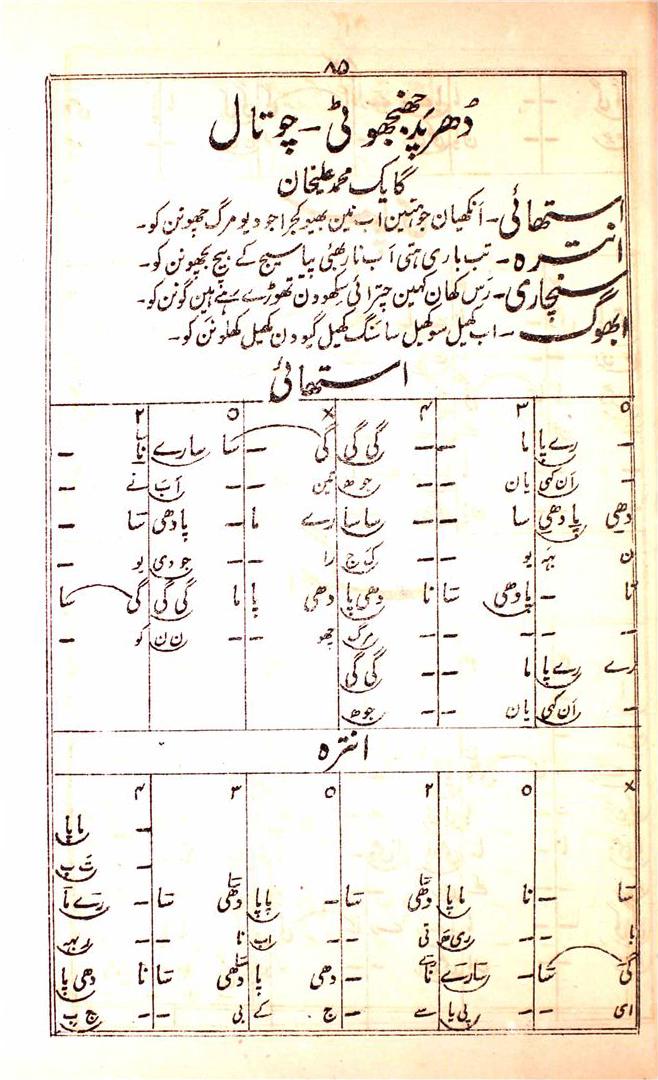 ۸۵
دُھرپَد جھنجھوٹی - چوتال
گایک محمد علیخان
استھائی - اَنکھیان جو ہتین اَب نین بھیو کجرا جو دیو مرگ چھونن کو -
انترہ - تب باری ہتی اَب نار بھئی پیا سیج کے بیچ بچھونن کو -
سنچاری - رَس کھان کہین چترائی سکھو دن تھوڑے رہے ہین گونن کو -
ابھوگ - اب کھیل سو کھیل سا سنگ کھیل گیو دن کھیل کھلونن کو -
استھائی
۰ ۳ ۴ × ۰ ۲
- رے پا ما - - گی گی گی - سا سارے -
- اَن کھی یان - - جوھ تین - - اَبَ نے -
دھی پا دھی سا - - سا سا رے ما - پا دھی سَا -
ن بَہ یو - - کَ ج را - - جو دی یو -
نا - پا دھی سَا نا دھی پا دھی پا ما گی گی گی سا
- - - - - مرگ چھو - - ن ن کو -
رے رے پا ما - - گی گی
- اَن کھی یان - - جوھ
انترہ
× ۰ ۲ ۰ ۳ ۴
- ما پا
-
سَا - نا ما پا دھی سَا - پا پا دھی سَا - رَے نا
با - - ری ہ تی - - اب نا - -
گی سَا - سَارَے نا - دھی پا دھی سَا نا دھی پا
ای - - پی یا سے - ج کے بی - -